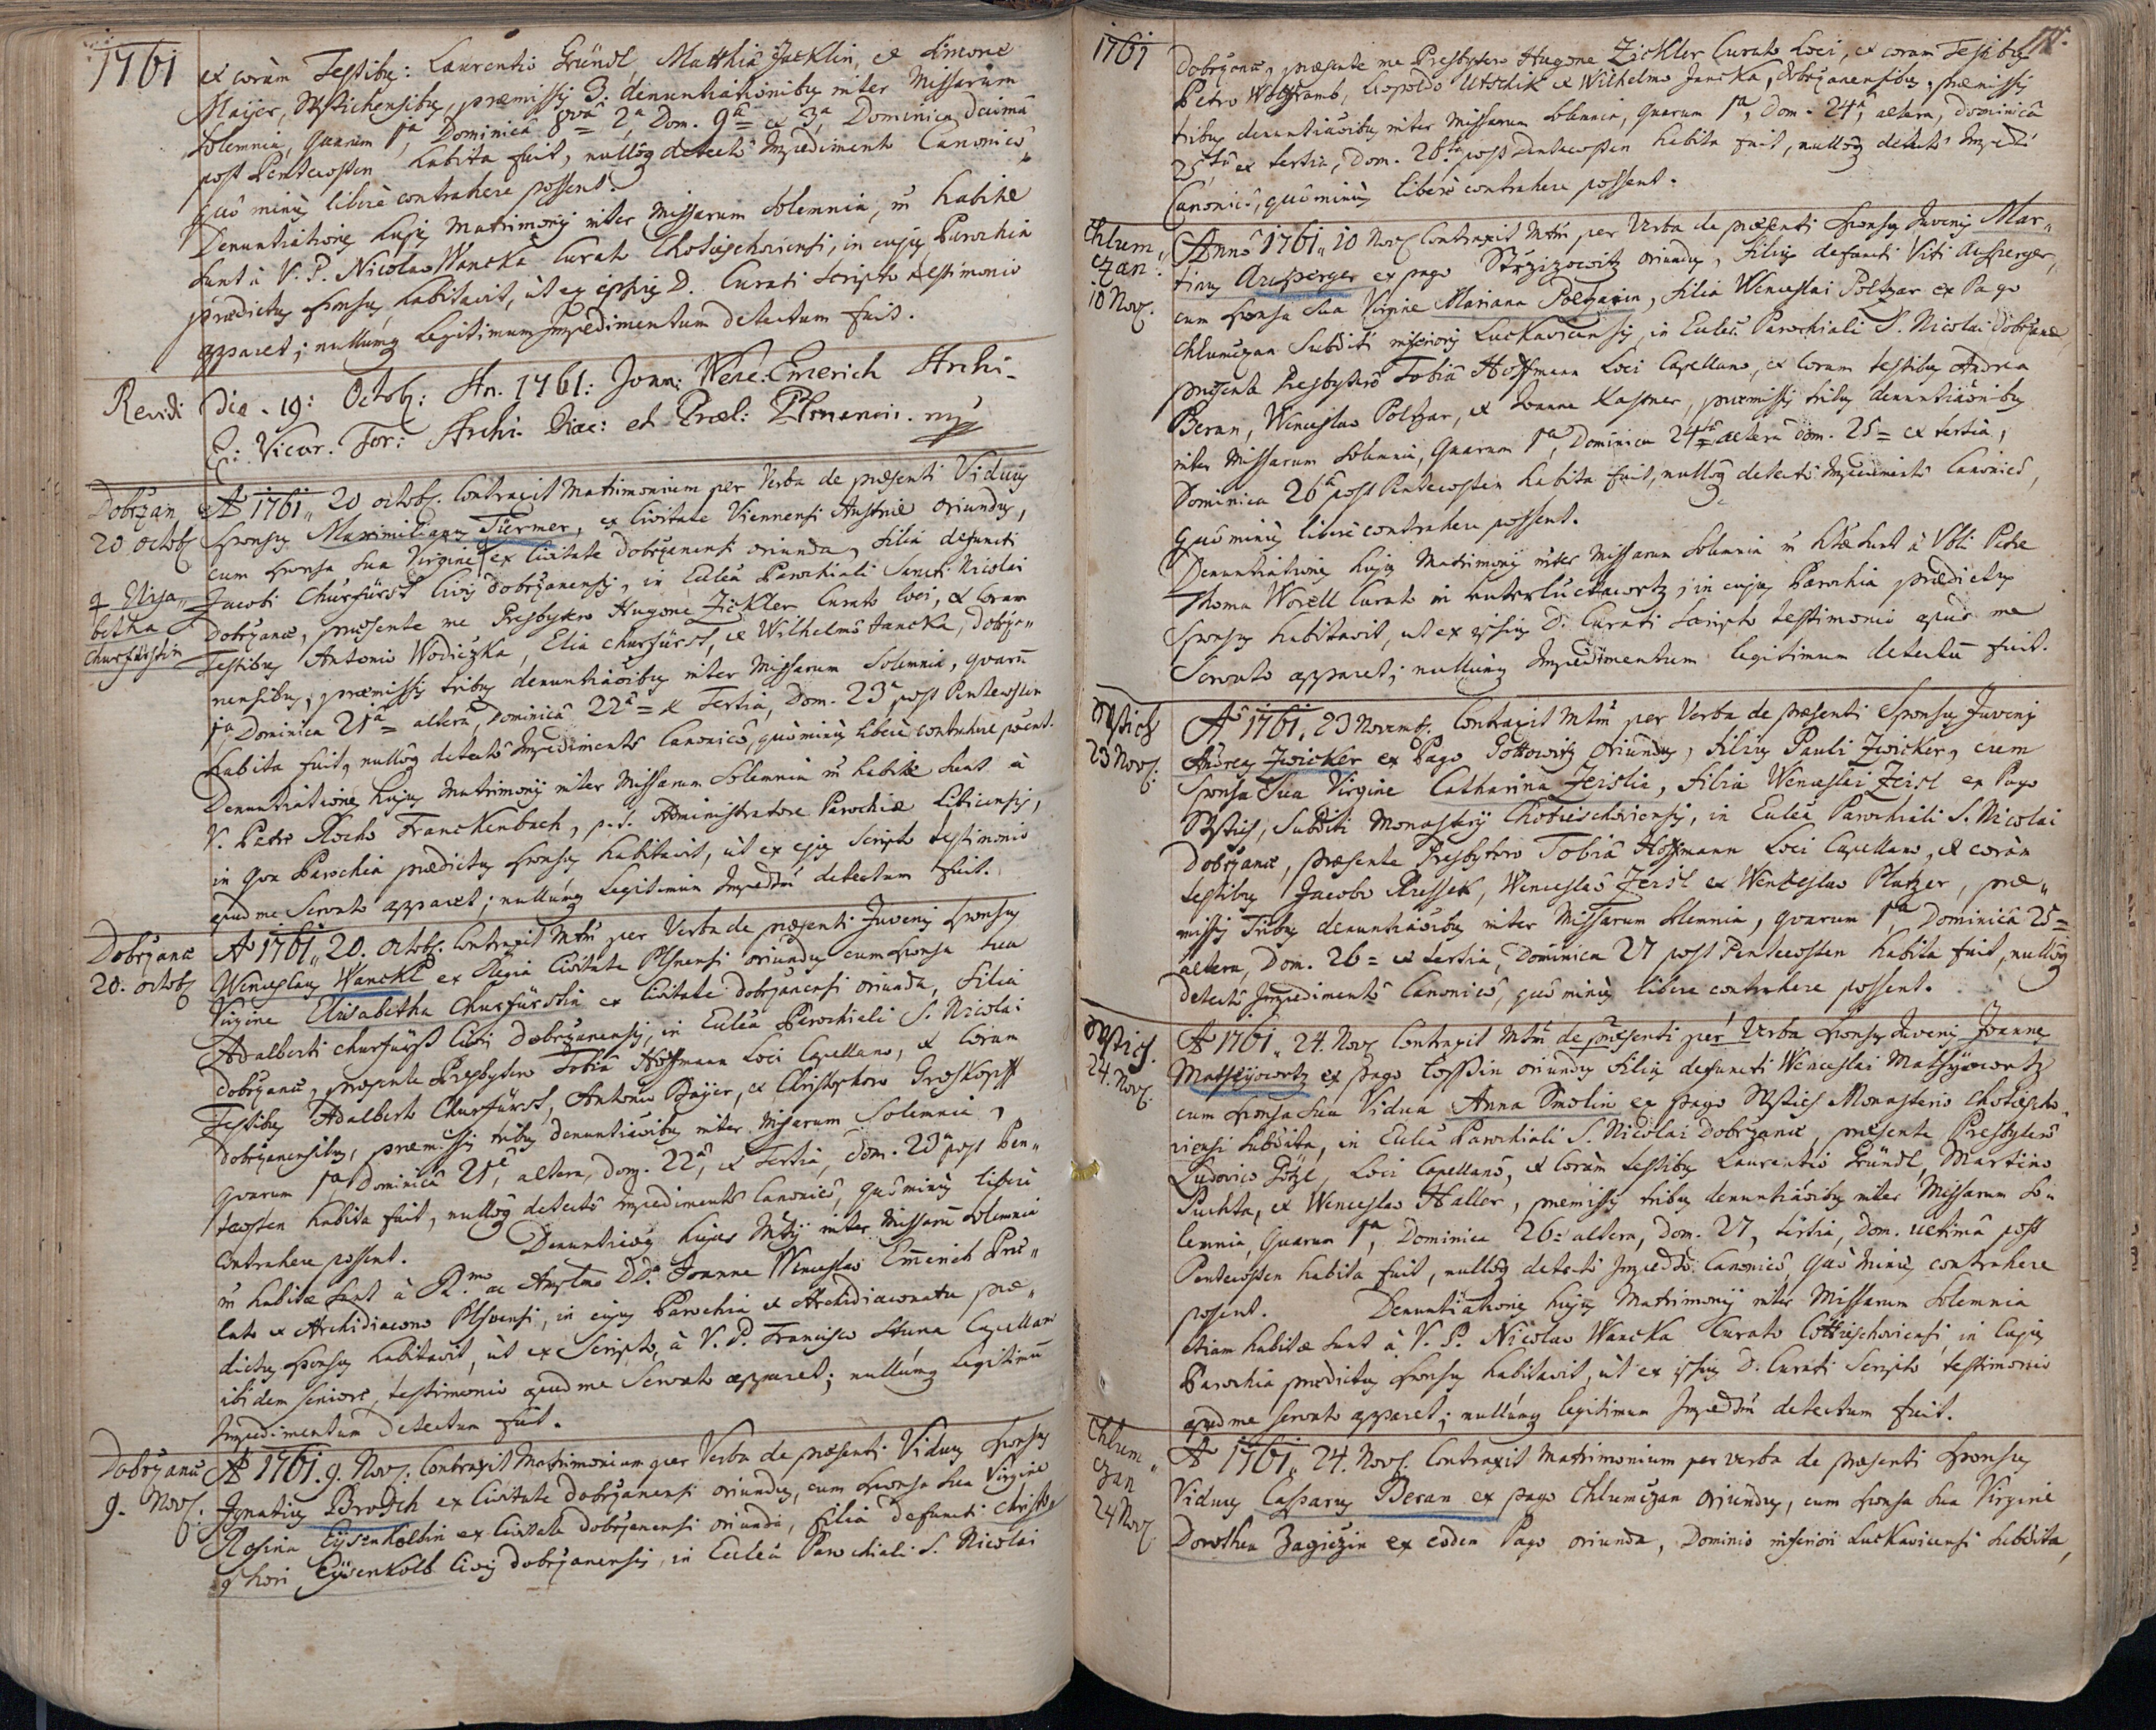 1761
et coràm Testibus: Laurentio Gründl, Matthiâ Jacklin, et Simone
Maijer, Stichensibus, præmissis 3. denuntiationibus inter Missarum
Solemnia, quarum 1ma Dominicâ 8vâ = 2a Dom. 9â = et 3a Dominica decimâ
post Pentecosten habita fuit, nullóq detectô Impedimento Canonicô,
quô minùs liberè contrahere possent.
Denuntiationes hujus Matrimonij inter Missarum Solemnia, ii habitæ
sunt à V. P. Nicolao Wancka Curato Chotieschoviensi, in cujus Parochia
prædictus Sponsus habitavit, ùt ex ipsius D. Curati Scripto testimonio
apparet; nullúmq Legitimum Impedimentum detectum fuit.
Revidi Die 19: Octob: An. 1761: Joan: Wenc: Emerich Archi-
E: Vicar. For: Archi. Diac: et Præl: Plsnensis. mp
Dobrzan
20 octob
A 1761 20 octob. Contraxit Matrimonium per Verba de præsenti Viduus
Sponsus Maximilianus Türmer, ex Civitate Viennensi Austriæ oriundus,
cum Sponsa Sua Virgine ex Civitate dobrzanensi oriunda, filia defuncti
Elisa-
betha
Churfürstin
Jacobi Churfürst Civis dobrzanensis, in Ecclea Parochiali Sancti Nicolai
Dobrzanæ, præsente me Presbytero Hugone Zickler Curato loci, et Coram
Testibus Antonio Wodiczka, Elia Churfürst, et Wilhelmô Jancka, Dobrza-
nensibus, præmissis tribus denuntiaöibus inter Missarum Solemnia, quarū
1ma Dominica 21â = altera, Dominicâ 22â = et Tertia, Dom. 23â post Pentecosten
habita fuit, nullóq detectô Impedimentô Canonicô, quò minùs liberè contrahere possent.
Denuntiationes hujus Matrimonij inter Missarum Solemnia ii habitæ sunt à
V. Patre Rocho Franckenbach, p. t. Administratore Parochiæ Liticensis,
in qua Parochia prædictus Sponsus habitavit, ùt ex ejus Scripto testimonio
apud me Servato apparet; nullúmq Legitimum Impedtū detectum fuit.
Dobrzanæ
20. octob
A 1761 20. octob. Contraxit Mtm per Verba de præsenti Juvenis Sponsus
Wenceslaus Wanckl ex Regia Civitate Plsnensi oriundus cum Sponsa sua
Virgine Elisabetha Churfürstin ex Civitate dobrzanensi oriunda, filia
Adalberti Churfürst Civis dobrzanensis, in Ecclea Parochiali S. Nicolai
dobrzanæ, præsente Presbytero Tobiâ Hoffmann Loci Capellano, et Coram
Testibus Adalberto Churfürst, Antonio Baijer, et Christophoro Groskopff
dobrzanensibus, præmissis tribus denuntiaöibus inter Missarum Solemnia,
quarum 1ma Dominicâ 21â, altera, dom. 22â, et Tertia, dom. 23â post Pen-
tecosten habita fuit, nullóq detectô impedimentô Canonicô, quò minùs liberè
contrahere possent. Denuntiaöes hujus Mtij inter Missarū Solemnia
ii habitæ sunt à R.mo ac Amplmo D.D. Joanne Wenceslao Emerich Præ-
lato et Archidiacono Plsnensi, in cujus Parochia et Archidiaconatu præ-
dictus Sponsus habitavit, ùt ex Scripto, à V. P. Francisco Stuna Capellano
ibidem seniore, testimonio apud me Servato apparet; nullúmq legitimū
Impedimentum detectum fuit.
Dobrzanæ
9. Nov.
A 1761. 9. Nov. Contraxit Matrimonium per Verba de præsenti Viduus Sponsus
Ignatius Brosch ex Civitate dobrzanensi oriundus, cum Sponsa sua Virgine
Rosina Eysenkolbin ex Civitate dobrzanensi oriunda, filia defuncti Christo-
phori Eysenkolb Civis dobrzanensis, in Ecclea Parochiali S. Nicolai
1761
Dobrzanæ, præsente me Presbytero Hugone Zickler Curato Loci, et coram Testibus
Petro Wolfframb, Leopoldo Utschik et Wilhelmo Jancka, dobrzanensibus, præmissis
tribus denuntiaöibus inter Missarum Solemnia, quarum 1ma, Dom. 24â, altera, Dominicâ
25tâ et tertia, Dom. 26tâ post Pentecosten habita fuit, nullóq detectô Impedtô
Canonicô, quô minùs liberè contrahere possent.
Chlum-
czan.
10 Nov.
Annô 1761 10 Nov Contraxit Mtm per Verba de præsenti Sponsus Juvenis Mar-
tinus Ausperger ex pago Strzizowitz oriundus, filius defuncti Viti Ausperger,
cum Sponsa sua Virgine Mariana Poltzarin, filia Wenceslai Poltzar ex Pago
Chlumczan Subditi inferioris Luckavicensis, in Ecclea Parochiali S. Nicolai Dobrzanæ,
præsente Presbyterô Tobiâ Hoffmann Loci Capellano, et Coram testibus Andrea
Beran, Wenceslao Poltzar, et Joanne Kastner, præmissis tribus denuntiaöibus
inter Missarum Solemnia, quarum 1ma, Dominica 24tâ altera dom. 25 = et tertia,
Dominica 26â post Pentecosten habita fuit, nullóq detectô Impedimentô Canonicô,
quô minùs liberè contrahere possent.
Denuntiationes hujus Matrimonij inter Missarum Solemnia ii htæ sunt à Vbli Patre
Thoma Worell Curato in unterluckawetz, in cujus Parochia prædictus
Sponsus habitavit, ut ex ipsius D. Curati Scripto testimonio apud me
Servato apparet; nullúmq Impedimentum legitimum detectū fuit.
Stich
23 Nov.
A 1761. 23 Novemb. Contraxit Mtm per Verba de præsenti Sponsus Juvenis
Andreas Zwicker ex Pago Gottowitz oriundus, filius Pauli Zwicker, cum
Sponsa sua Virgine Catharina Zeislin, filia Wenceslai Zeisl ex Pago
Stich, Subditi Monasterij Chotieschoviensis, in Ecclea Parochiali S. Nicolai
Dobrzanæ, præsente Presbytero Tobiâ Hoffmann Loci Capellano, et coràm
testibus Jacobo Ressek, Wenceslaô Zeisl et Wenceslao Platzer, præ-
missis Tribus denuntiaöibus inter Missarum Solemnia, quarum 1ma Dominicâ 25 =
altera, Dom. 26 = et tertia, Dominica 27 post Pentecosten habita fuit, nullóq
detectô Impedimentô Canonicô, quô minùs libere contrahere possent.
Stich.
24. Nov.
A 1761. 24. Nov. Contraxit Mtm de præsenti per Verba Sponsus Juvenis Joannes
Matheÿowetz ex pago Losssin oriundus filius defuncti Wenceslai Matheÿowetz
cum Sponsa sua Vidua Anna Smolin ex pago Stich Monasterio Chotiescho-
viensi subdita, in Ecclea Parochiali S. Nicolai Dobrzanæ, præsente Presbyterô
Ludovico Götzl, Loci Capellanô, et Coràm testibus Laurentio Gründl, Martino
Puchta, et Wenceslao Haller, præmissis tribus denuntiaöibus inter Missarum So-
lemnia, quarum 1ma, Dominica 26 = altera, dom. 27, tertia, dom. ultima post
Pentecosten habita fuit, nullóq detectô Impedtô Canonicô, quô minùs contrahere
possent. Denuntiationes hujus Matrimonij inter Missarum Solemnia
etiam habitæ sunt à V. P. Nicolao Wancka Curato Cottieschoviensi, in cujus
Parochia prædictus Sponsus habitavit, ùt ex ipsius D. Curati Scripto testimonio
apud me Servato apparet; nullúmq legitimum Impedtm detectum fuit.
Chlum-
czan
24 Nov.
A 1761. 24. Nov. Contraxit Matrimonium per verba de præsenti Sponsus
Viduus Casparus Beran ex pago Chlumczan oriundus, cum Sponsa sua Virgine
Dorothea Zagiczin ex eodem Pago oriunda, Dominio inferiori Luckavicensi subdita,